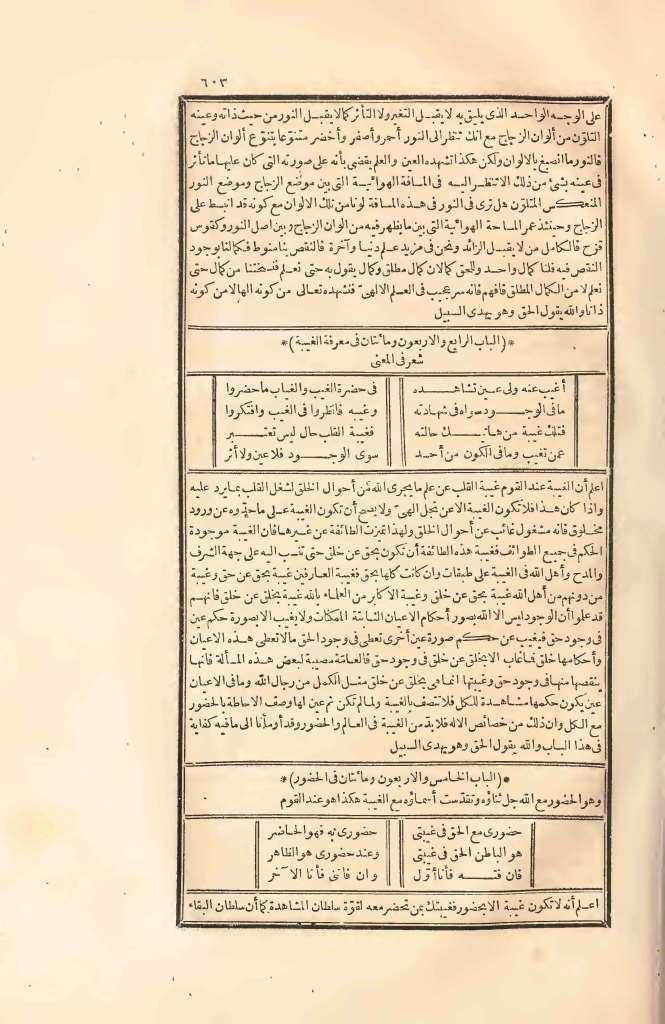 ٦٠٣
على الوجه الواحد الذى يليق به لا يقبل التغير ولا التأثر كما لا يقبل النور من حيث ذاته وعينه
التلون من ألوان الزجاج مع انك تنظر الى النور أحمر وأصفر وأخضر متنوعا بتنوّع ألوان الزجاج
فالنور ما انصبغ بالالوان ولكن هكذا تشهده العين والعلم يقضى بأنه على صورته التى كان عليها ما تأثر
فى عينه بشئ من ذلك الا تنظر اليه فى المسافة الهوائية التى بين موضع الزجاج وموضع النور
المنعكس المتلون هل ترى فى النور فى هذه المسافة لونا من تلك الالوان مع كونه قد انبسط على
الزجاج وحينئذ عمر المساحة الهوائية التى بين ما يظهر فيه من ألوان الزجاج وبين اصل النور وكقوس
قزح فالكامل من لا يقبل الزائد ونحن فى مزيد علم دنيا وآخرة فالنقص بنا منوط فكمالنا بوجود
النقص فيه فلنا كمال واحد وللحق كمالان كمال مطلق وكمال يقول به حتى نعلم فنسختنا من كمال حتى
نعلم لا من الكمال المطلق فافهم فانه سر عجيب فى العلم الالهىّ فنشهده تعالى من كونه الها لا من كونه
ذاتا والله يقول الحق وهو يهدى السبيل
* (الباب الرابع والاربعون ومائتان فى معرفة الغيبة) *
شعر فى المعنى
أغيب عنه ولى عين تشاهده فى حضرة الغيب والغياب ما حضروا
ما فى الوجود سواه فى شهادته وغيبه فانظروا فى الغيب وافتكروا
فتلك غيبة من هاتيك حالته فغيبة القلب حال ليس تعتبر
عمن تغيب وما فى الكون من أحد سوى الوجود فلا عين ولا أثر
اعلم أن الغيبة عند القوم غيبة القلب عن علم ما يجرى الله من أحوال الخلق لشغل القلب بما يرد عليه
واذا كان هذا فلا تكون الغيبة الا عن تجل الهىّ ولا يصح أن تكون الغيبة على ما حدّوه عن ورود
مخلوق فانه مشغول غائب عن أحوال الخلق ولهذا تميزت الطائفة عن غيرها فان الغيبة موجودة
الحكم فى جميع الطوائف فغيبة هذه الطائفة أن تكون بحق عن خلق حتى تنسب اليه على جهة الشرف
والمدح وأهل الله فى الغيبة على طبقات وان كانت كلها بحق فغيبة العارفين غيبة بحق عن حق وغيبة
من دونهم من أهل الله غيبة بحق عن خلق وغيبة الاكابر من العلماء بالله غيبة بخلق عن خلق فانهم
قد علموا أن الوجود ليس الا الله بصور أحكام الاعيان الثابتة الممكنات ولا يغيب الا بصورة حكم عين
فى وجود حق فيغيب عن حكم صورة عين أخرى تعطى فى وجود الحق ما لا تعطى هذه الاعيان
وأحكامها خلق فما غاب الا بخلق عن خلق فى وجود حق فالعامّة مصيبة لبعض هذه المسألة فانها
ينقصها منها فى وجود حق وغيبتها انما هى بخلق عن خلق مثل الكمل من رجال الله وما فى الاعيان
عين يكون حكمها مشاهدة للكل فلا تتصف بالغيبة ولما لم تكن ثم عين لها وصف الاحاطة بالحضور
مع الكل وان ذلك من خصائص الاله فلا بدّ من الغيبة فى العالم والحضور وقد أومأنا الى ما فيه كفاية
فى هذا الباب والله يقول الحق وهو يهدى السبيل
* (الباب الخامس والاربعون ومائتان فى الحضور) *
وهو الحضور مع الله جل ثناؤه وتقدّست أسماؤه مع الغيبة هكذا هو عند القوم
حضورى مع الحق فى غيبتى حضورى به فهو الحاضر
هو الباطن الحق فى غيبتى وعند حضورى هو الظاهر
فان فته فأنا أوّل وان فاتنى فأنا الآخر
اعلم أنه لا تكون غيبة الا بحضور فغيبتك بمن تحضر معه لقوّة سلطان المشاهدة كما أن سلطان البقاء